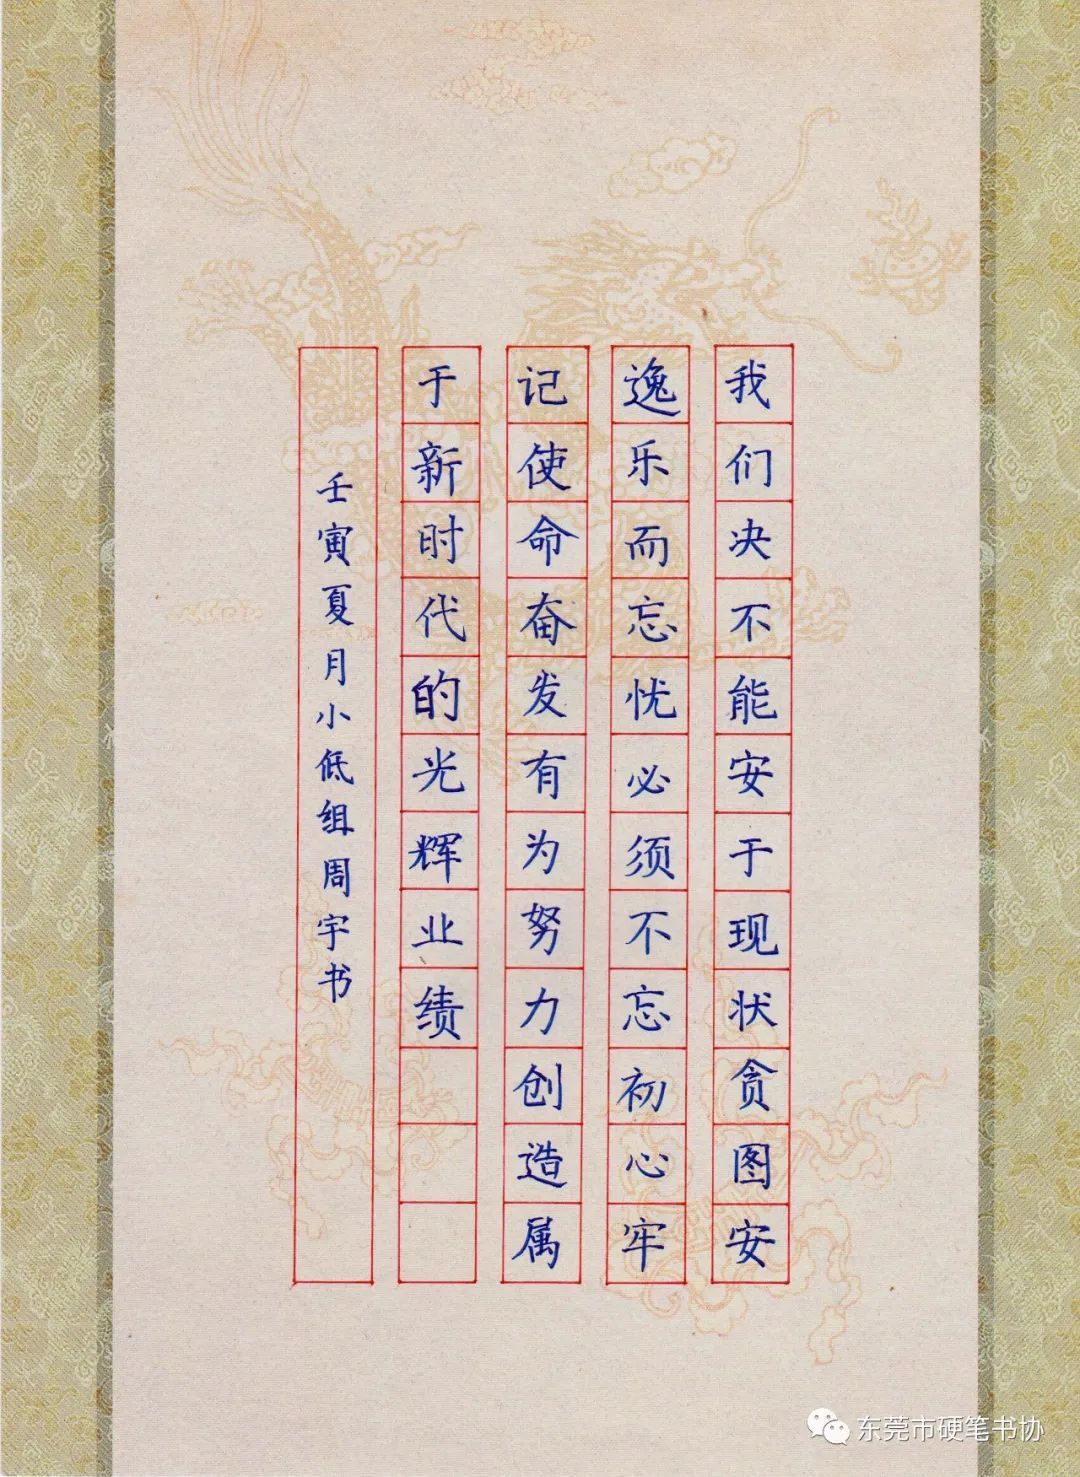 我们决不能安于现状贪图安
逸乐而忘忧必须不忘初心牢
记使命奋发有为努力创造属
于新时代的光辉业绩
壬寅夏月小低组周宇书
东莞市硬笔书协